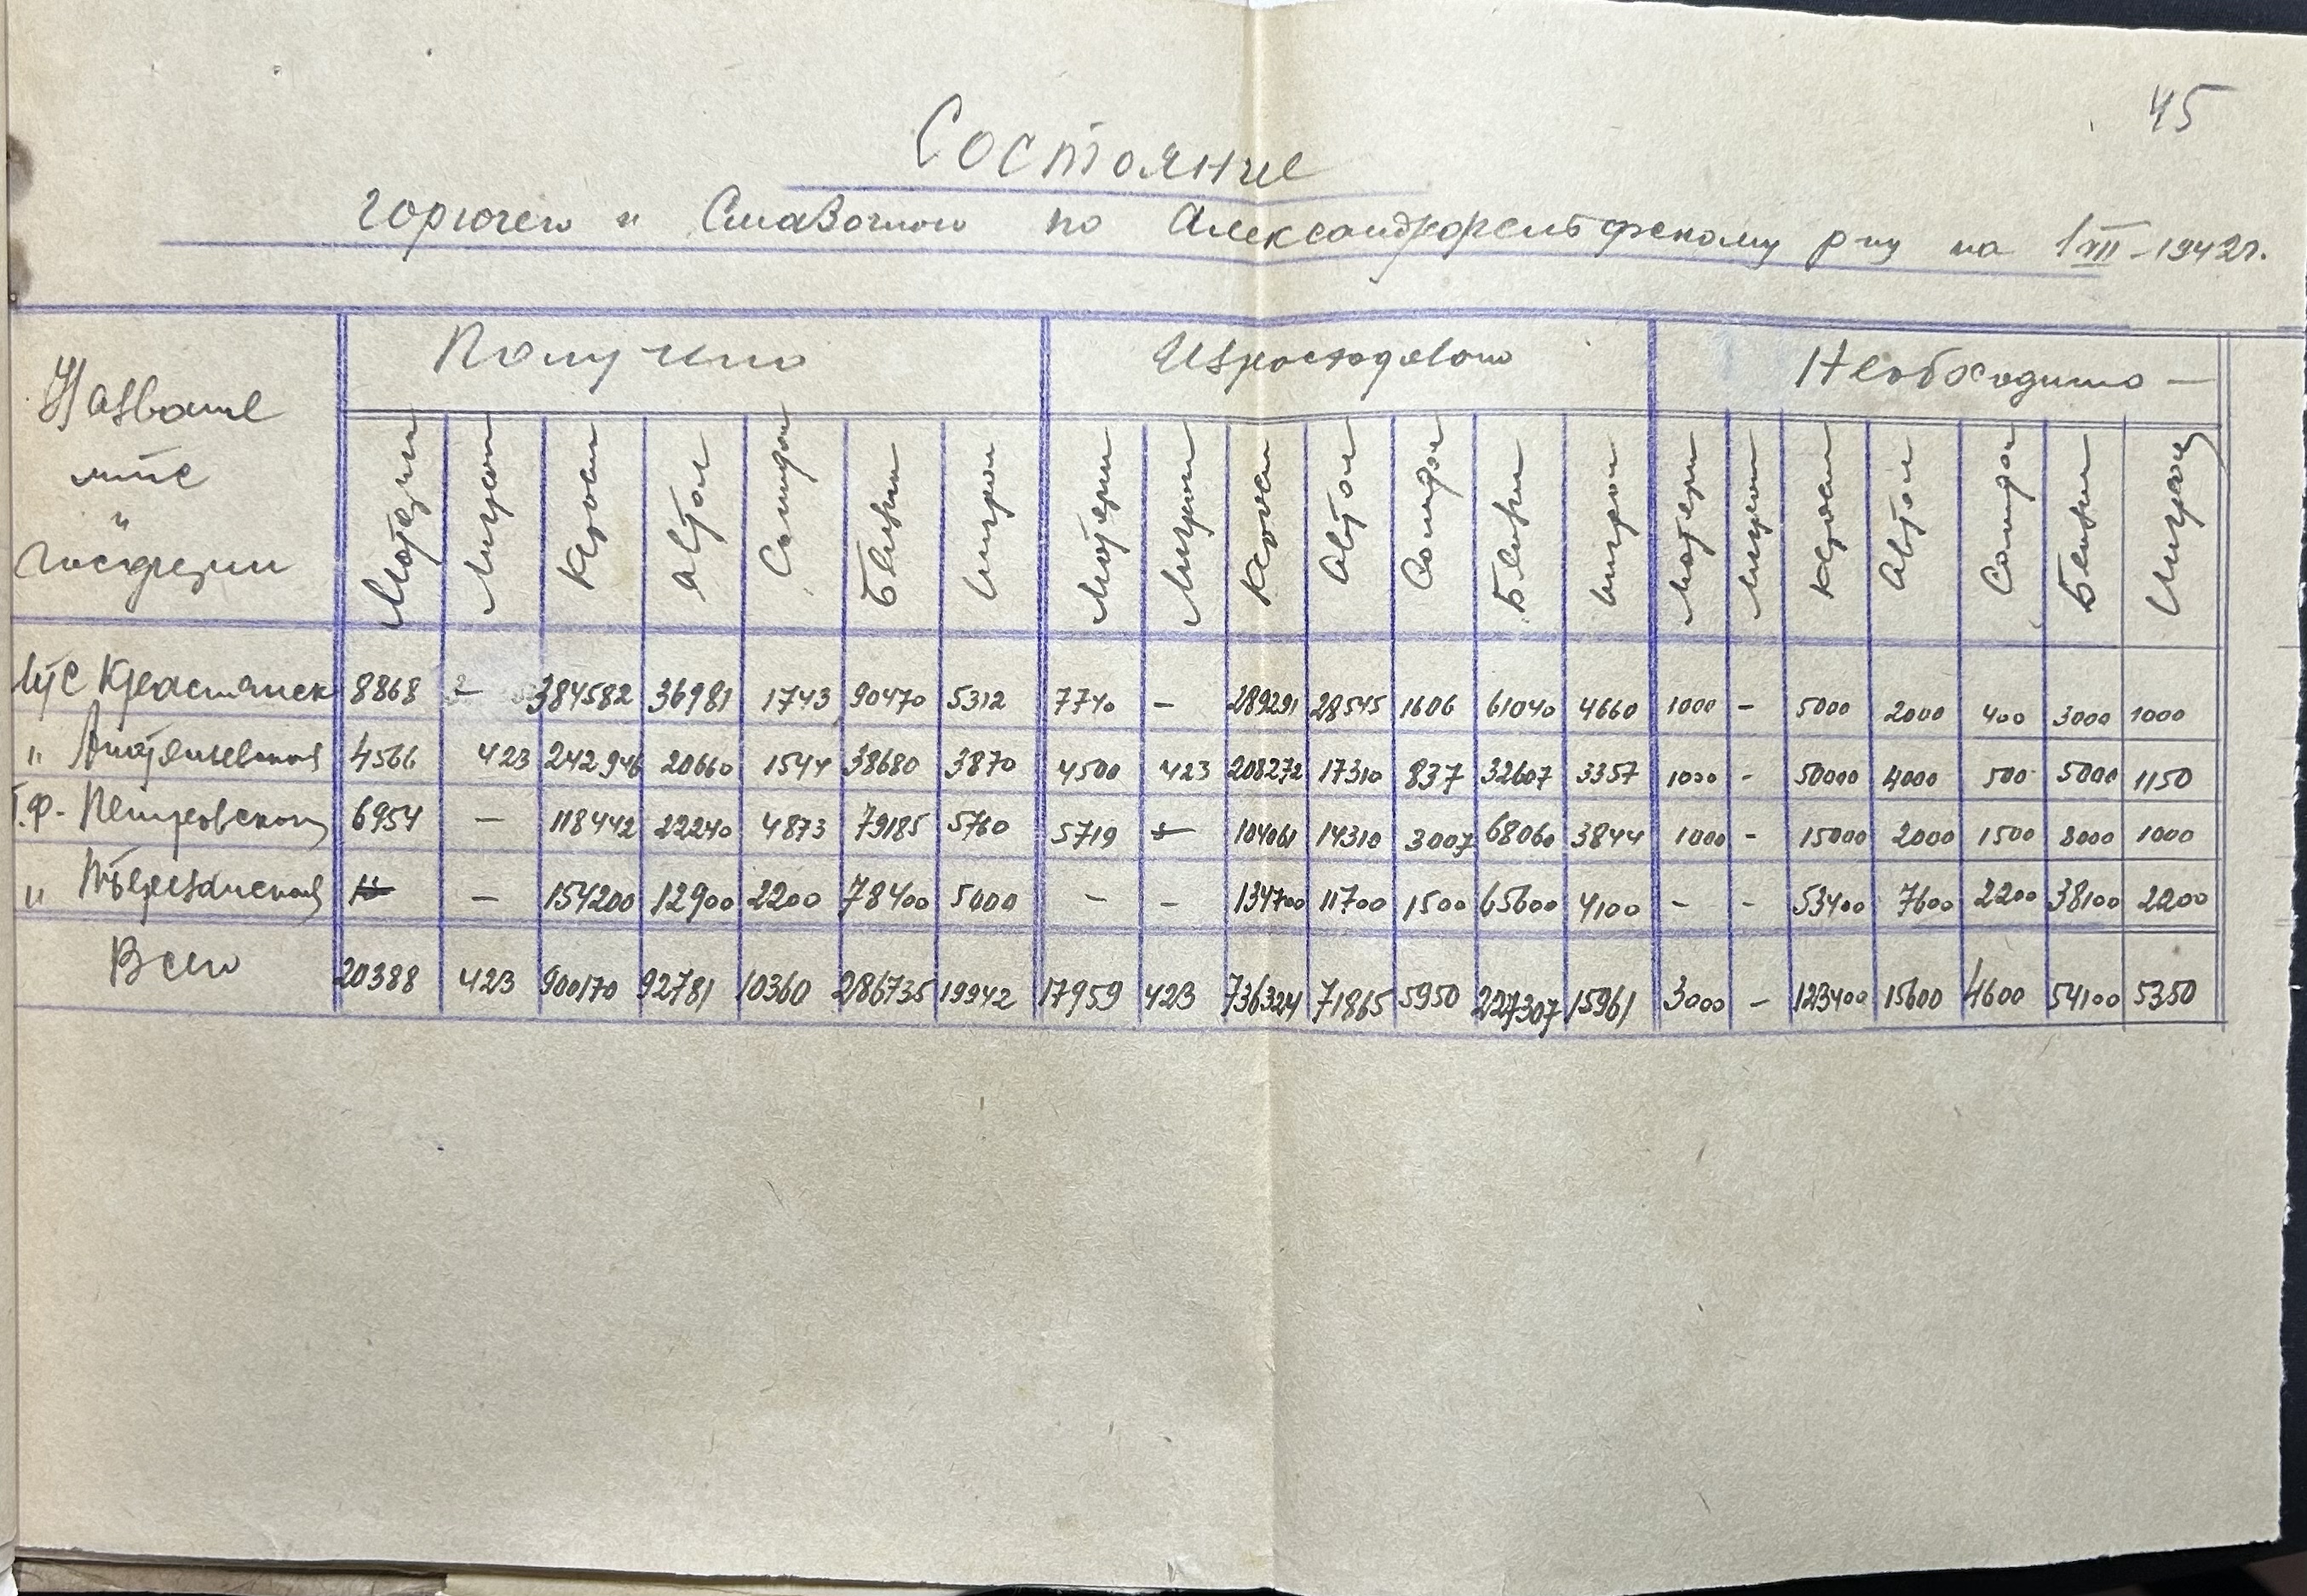 45
Состояние
горючего и Смазочного по Александрфельдскому р-ну на 1 XII-1942г.
Название мтс и госферми
Получено
Израсходовано
Необходимо —
Мотери Лигрои Кероси Автол Солидол Бензин Нигрол
Мотери Лигрои Кероси Автол Солидол Бензин Нигрол
Мотери Лигрои Кероси Автол Солидол Бензин Нигрол
МТС 8868 – 384582 36981 1743 90470 5312 7740 – 289291 28545 1606 61040 4660 1000 – 5000 2000 400 3000 1000
" 4566 423 242946 20660 1544 38680 3870 4500 423 208272 17310 837 32607 3357 1000 - 50000 4000 500 5000 1150
Г.Ф. - Петровской 6954 – 118442 22240 4873 79185 5760 5719 – 104061 14310 3007 68060 3844 1000 - 15000 2000 1500 8000 1000
" – 154200 12900 2200 78400 5000 – – 134700 11700 1500 65600 4100 – - 53400 7600 2200 38100 2200
Всего 20388 423 900170 92781 10360 286735 19942 17959 423 736324 71865 5950 227307 15961 3000 – 123400 15600 4600 54100 5350